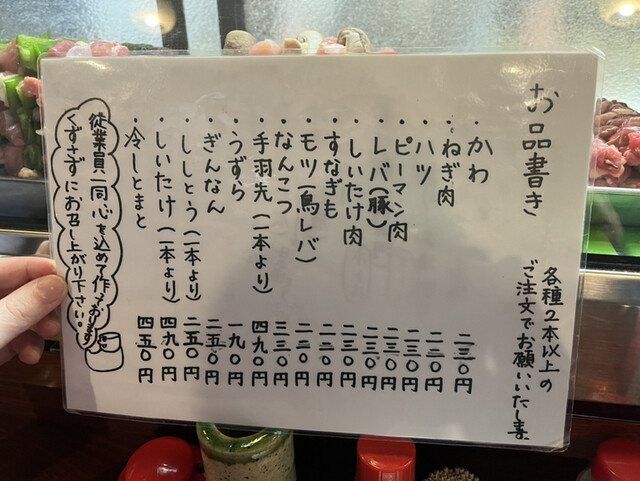 お品書き
各種2本以上の
ご注文でお願いいたします。
・かわ 二三〇円
・ねぎ肉 二三〇円
・ハツ 二三〇円
・ピーマン肉 二三〇円
・レバ(豚) 二三〇円
・しいたけ肉 二三〇円
・すなぎも 二二〇円
・モツ(鳥レバ) 二二〇円
・なんこつ 三三〇円
・手羽先(一本より) 四九〇円
・うずら 一九〇円
・ぎんなん 二五〇円
・ししとう(一本より) 二五〇円
・しいたけ(一本より) 四九〇円
・冷しとまと 四五〇円
従業員一同心を込めて作っております
くずさずにお召し上がり下さい。